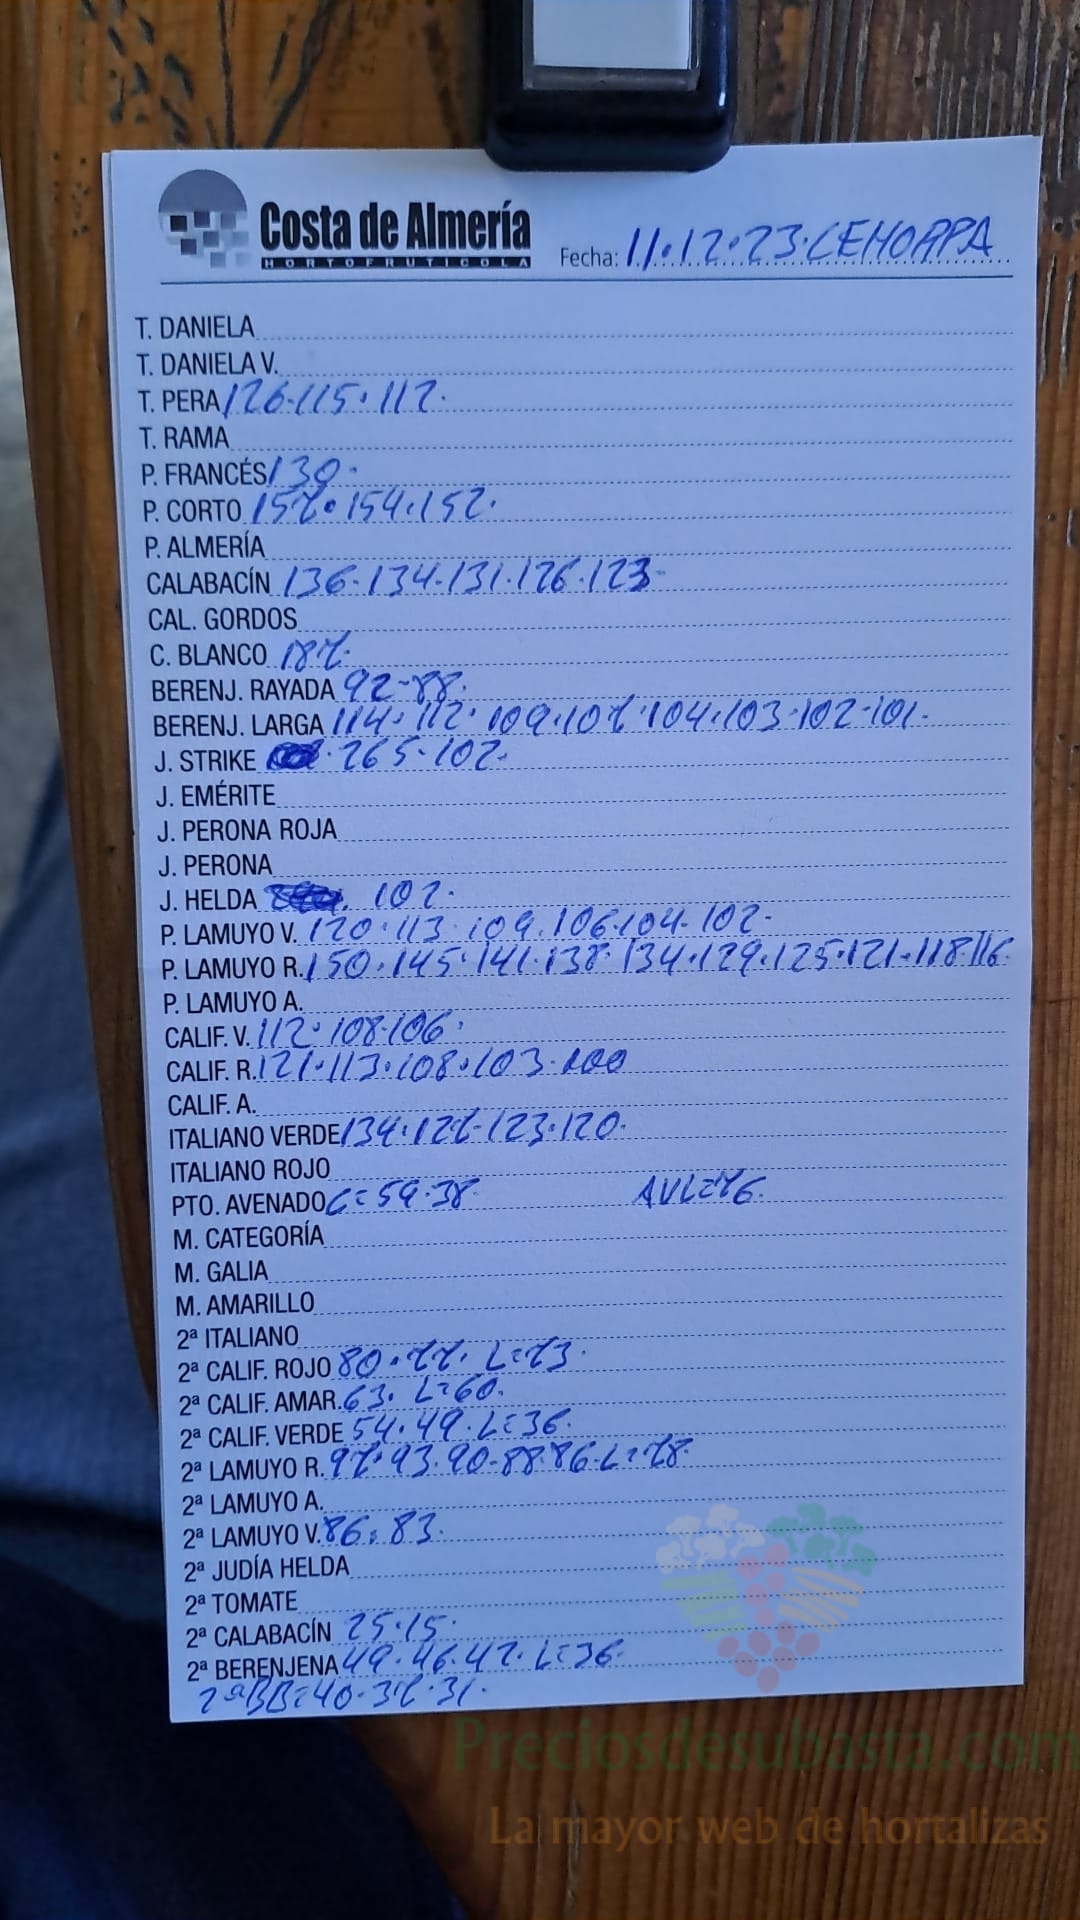 Costa de Almería
HORTOFRUTICOLA
Fecha: 11.12.23.CEHORPA
T. DANIELA
T. DANIELA V.
T. PERA 126.115.112.
T. RAMA
P. FRANCÉS 130.
P. CORTO 157.154.152.
P. ALMERÍA
CALABACÍN 136.134.131.126.123-
CAL. GORDOS
C. BLANCO 187.
BERENJ. RAYADA 92-88.
BERENJ. LARGA 114.112.109.107.104.103.102.101.
J. STRIKE 265.102.
J. EMÉRITE
J. PERONA ROJA
J. PERONA
J. HELDA 102.
P. LAMUYO V. 120.113.109.106.104.102-
P. LAMUYO R. 150.145.141.138.134.129.125.121.118.116.
P. LAMUYO A.
CALIF. V. 112.108.106.
CALIF. R. 121.113.108.103.100
CALIF. A.
ITALIANO VERDE 134.127.123.120.
ITALIANO ROJO
PTO. AVENADO C=59.38. AVL=76.
M. CATEGORÍA
M. GALIA
M. AMARILLO
2ª ITALIANO
2ª CALIF. ROJO 80.77. L=73.
2ª CALIF. AMAR. 63. L=60.
2ª CALIF. VERDE 54.49. L=36.
2ª LAMUYO R. 97.93.90-88.86-L=78.
2ª LAMUYO A.
2ª LAMUYO V. 86.83.
2ª JUDÍA HELDA
2ª TOMATE
2ª CALABACÍN 25.15.
2ª BERENJENA 49.46.42. L=36.
2ªBB=40.37.31.
Preciosdesubasta.com
La mayor web de hortalizas